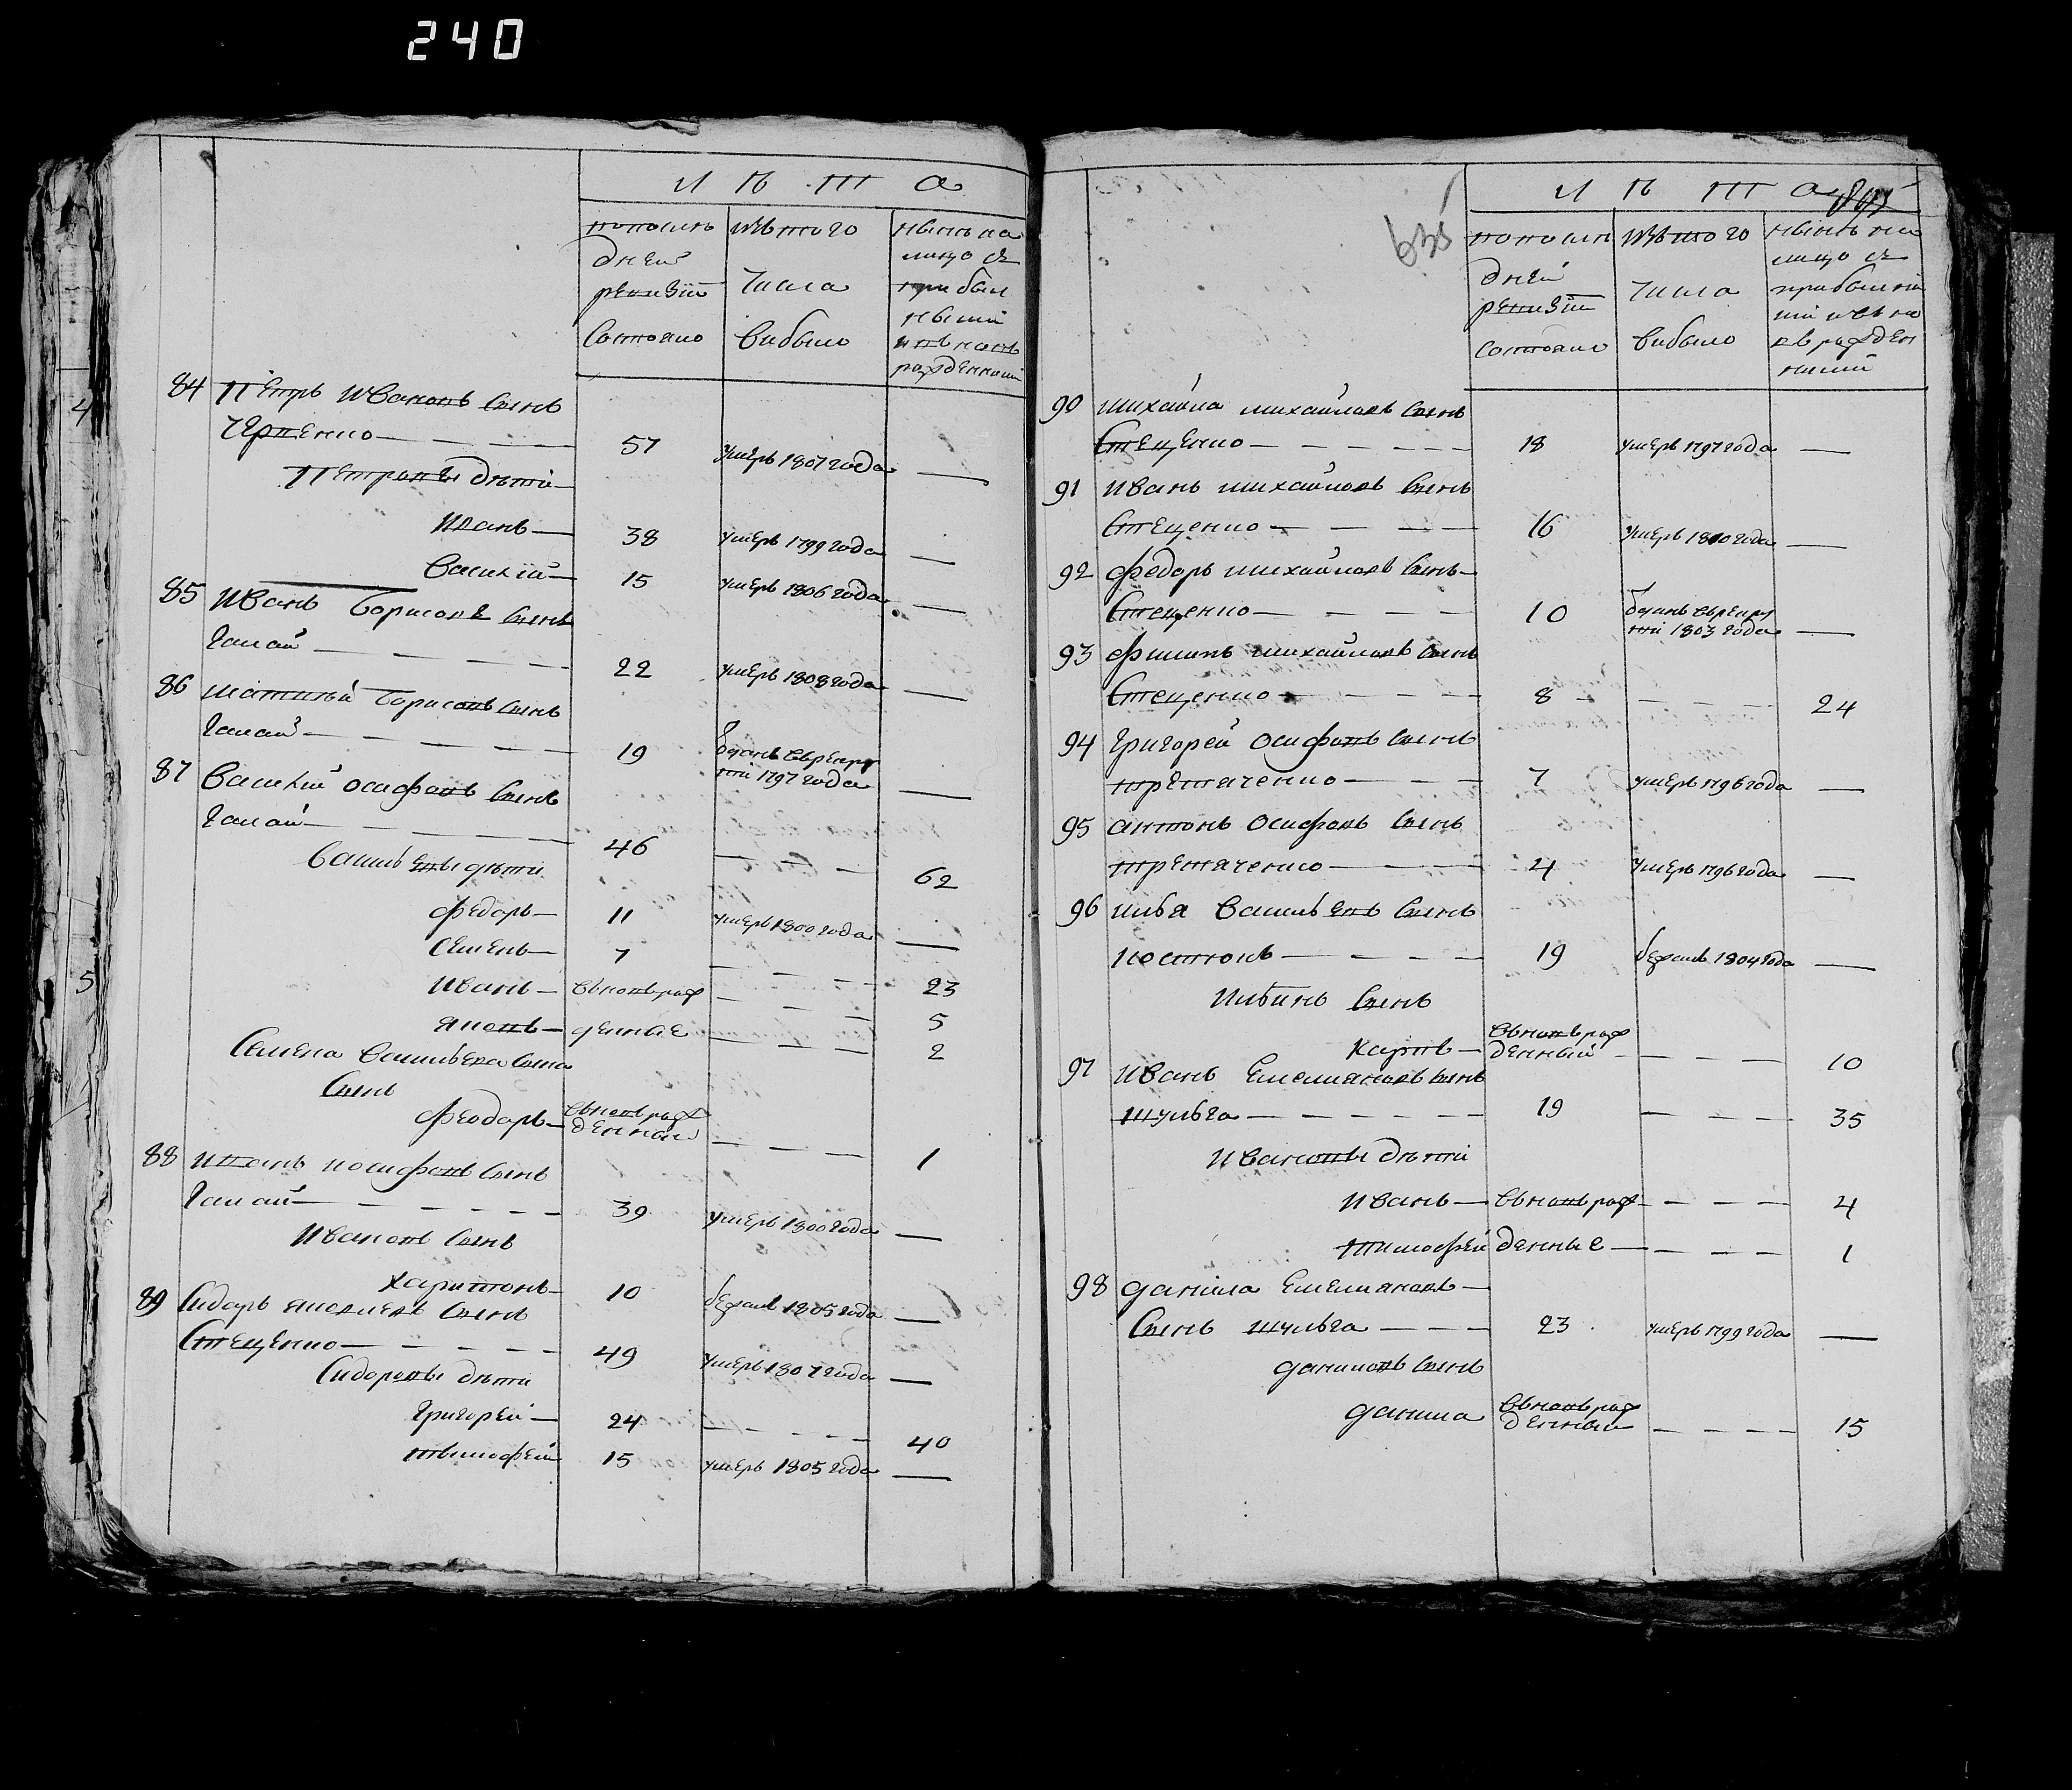 240
лѣта
попослѣ изътого нынѣ на
дней лицо съ
ревизїи числа прибыл
ными
состояло выбыло и внонь
рожденными
84 Петръ Ивановъ сынъ
Черненко 57 умеръ 1807 года —
Петровы дѣти
Иванъ — 38 умеръ 1799 года —
Василїй — 15 умеръ 1806 года —
85 Иванъ Борисовъ сынъ
Галай 22 умеръ 1808 года —
86 Матвѣй Борисовъ сынъ
Галай — 19 отданъ въ рекру
ти 1797 года —
87 Василїй Осифовъ сынъ
Галай — 46 — 62
Васильевы дѣти
Федоръ — 11 умеръ 1800 года —
Семенъ — 7 — 23
Иванъ — вновь рож — 5
Яковъ — денные — 2
Семена Васильева сына
сынъ
Феодоръ — вновь рож
денный — 1
88 Иванъ Иосифовъ сынъ
Галай — 39 умеръ 1800 года —
Ивановъ сынъ
Харитонъ — 10 бежалъ 1805 года —
89 Сидоръ Яковлевъ сынъ
Стеценко — 49 умеръ 1807 года —
Сидоровы дѣти
Григорей — 24 — 40
Тимофей 15 умеръ 1805 года —
лѣта
попослѣ изътого нынѣ на
дней лицо съ
ревизїи числа прибылы
ми и вно
состояло выбыло въ рожден
ными
90 Михайла Михайловъ сынъ
Стеценко — 18 умеръ 1797 года —
91 Иванъ Михайловъ сынъ
Стеценко — 16 умеръ 1800 года —
92 Федоръ Михайловъ сынъ —
Стеценко — 10 отданъ въ рекру
ти 1803 года —
93 Филипъ Михайловъ сынъ
Стеценко — 8 — 24
94 Григорей Осифовъ сынъ
Третяченко — 7 умеръ 1796 года —
95 Антонъ Осифовъ сынъ
Третяченко — 4 умеръ 1796 года —
96 Илья Васильевъ сынъ
Костюкъ — 19 бежалъ 1804 года —
Ильинъ сынъ
Карпъ — вновь рож
денный — 10
97 Иванъ Емельяновъ сынъ
Шульга — 19 — 35
Ивановы дѣти
Иванъ — вновь рож — 4
Тимофей денные — 1
98 Данила Емельяновъ —
сынъ Шульга — 23 умеръ 1799 года —
Даниловъ сынъ
Данила вновь рож
денный — 15